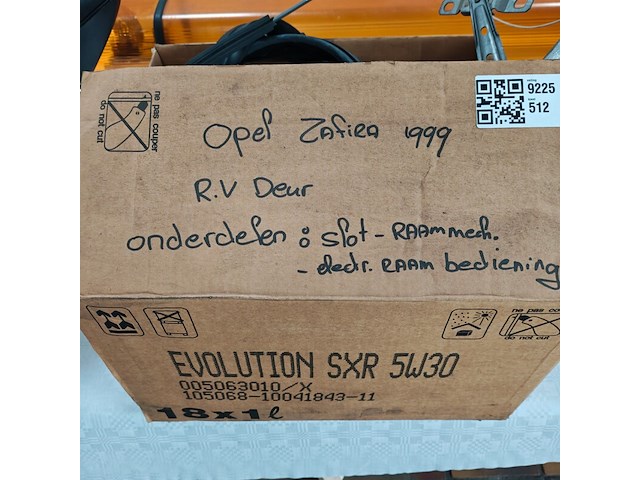 9225
512
ne pas couper
do not cut
Opel Zafira 1999
R.V Deur
onderdelen : slot - RAAMmech.
- electr. RAAM bediening
ne pas co
do not cut
EVOLUTION SXR 5W30
005063010/X
105068-10041843-11
18x1l